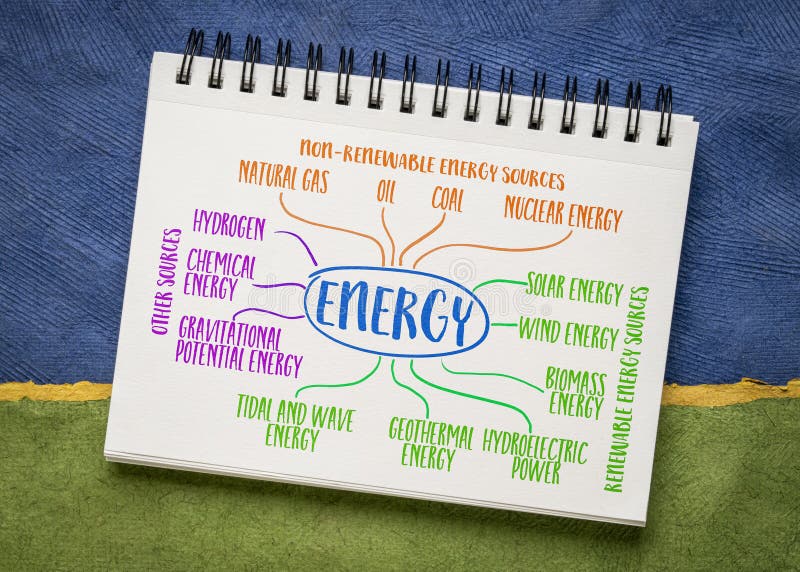 NON-RENEWABLE ENERGY SOURCES
NATURAL GAS
OIL
COAL
NUCLEAR ENERGY
HYDROGEN
CHEMICAL
ENERGY
GRAVITATIONAL
POTENTIAL ENERGY
OTHER SOURCES
ENERGY
SOLAR ENERGY
WIND ENERGY
BIOMASS
ENERGY
RENEWABLE ENERGY SOURCES
TIDAL AND WAVE
ENERGY
GEOTHERMAL
ENERGY
HYDROELECTRIC
POWER
dreamstime